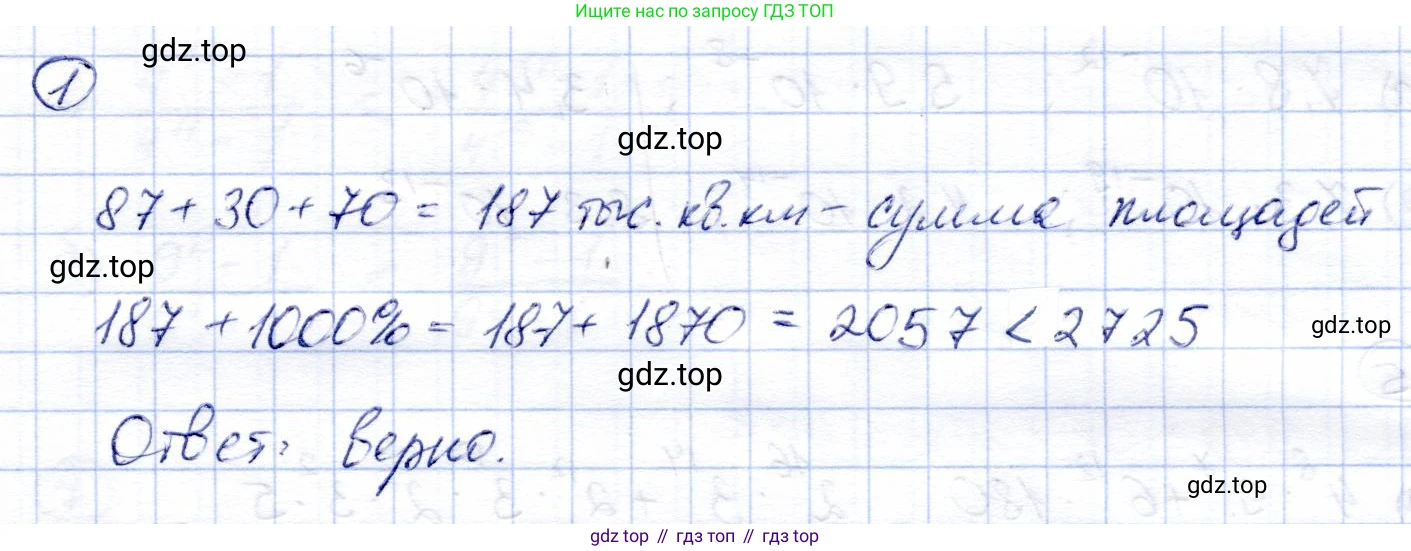 Ищите нас по запросу ГДЗ ТОП
gdz.top
1
gdz.top
87 + 30 + 70 = 187 тыс. кв. км – сумма площадей
gdz.top
187 + 1000% = 187 + 1870 = 2057 < 2725
gdz.top
gdz.top
Ответ: верно.
gdz.top
gdz top // гдз топ // gdz top